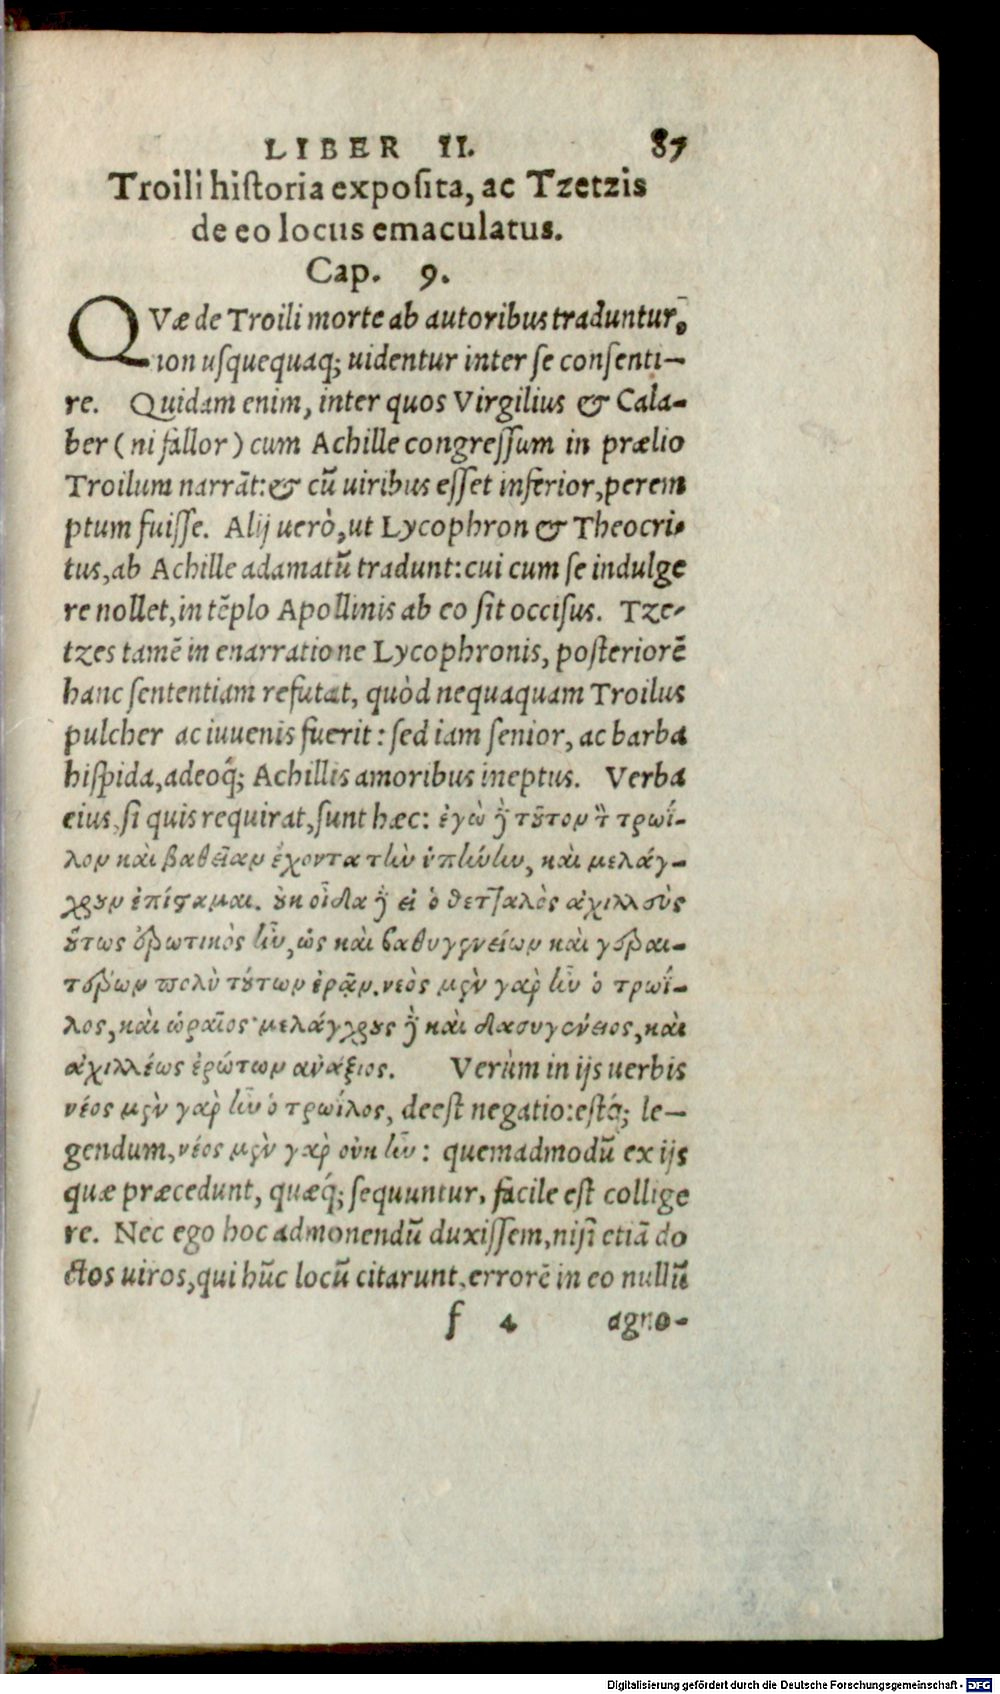 LIBER II. 87
Troili historia exposita, ac Tzetzis
de eo locus emaculatus.
Cap. 9.
QVæ de Troili morte ab autoribus traduntur,
non usquequaq; uidentur inter se consenti-
re. Quidam enim, inter quos Virgilius & Cala-
ber (ni fallor) cum Achille congressum in prælio
Troilum narrāt: & cū uiribus esset inferior, perem
ptum fuisse. Alij uerò, ut Lycophron & Theocri-
tus, ab Achille adamatū tradunt: cui cum se indulge
re nollet, in tēplo Apollinis ab eo sit occisus. Tze-
tzes tamē in enarratione Lycophronis, posteriorē
hanc sententiam refutat, quòd nequaquam Troilus
pulcher ac iuuenis fuerit: sed iam senior, ac barba
hispida, adeoq́; Achillis amoribus ineptus. Verba
eius, si quis requirat, sunt hæc: ἐγὼ δὲ τοῦτον τὸν τρωΐ-
λον καὶ βαθεῖαν ἔχοντα τὴν ὑπήνην, καὶ μελάγ-
χρουν ἐπίσταμαι. οὐκ οἶδα δὲ εἰ ὁ θετταλὸς ἀχιλλεὺς
οὕτως ἐρωτικὸς ἦν, ὡς καὶ βαθυγενείων καὶ γεραι-
τέρων πολὺ τούτων ἐρᾶν. νεὸς μὲν γὰρ ἦν ὁ τρωΐ-
λος, καὶ ὡραῖος· μελάγχρους δὲ καὶ δασυγένειος, καὶ
ἀχιλλέως ἐρώτων ἀνάξιος. Verùm in ijs uerbis
νέος μὲν γὰρ ἦν ὁ τρωΐλος, deest negatio: estq́; le-
gendum, νέος μὲν γὰρ οὐκ ἦν: quemadmodū ex ijs
quæ præcedunt, quæq́; sequuntur, facile est collige
re. Nec ego hoc admonendū duxissem, nisi etiā do
ctos uiros, qui hūc locū citarunt, errorē in eo nullū
f 4 agno-
Digitalisierung gefördert durch die Deutsche Forschungsgemeinschaft - DFG